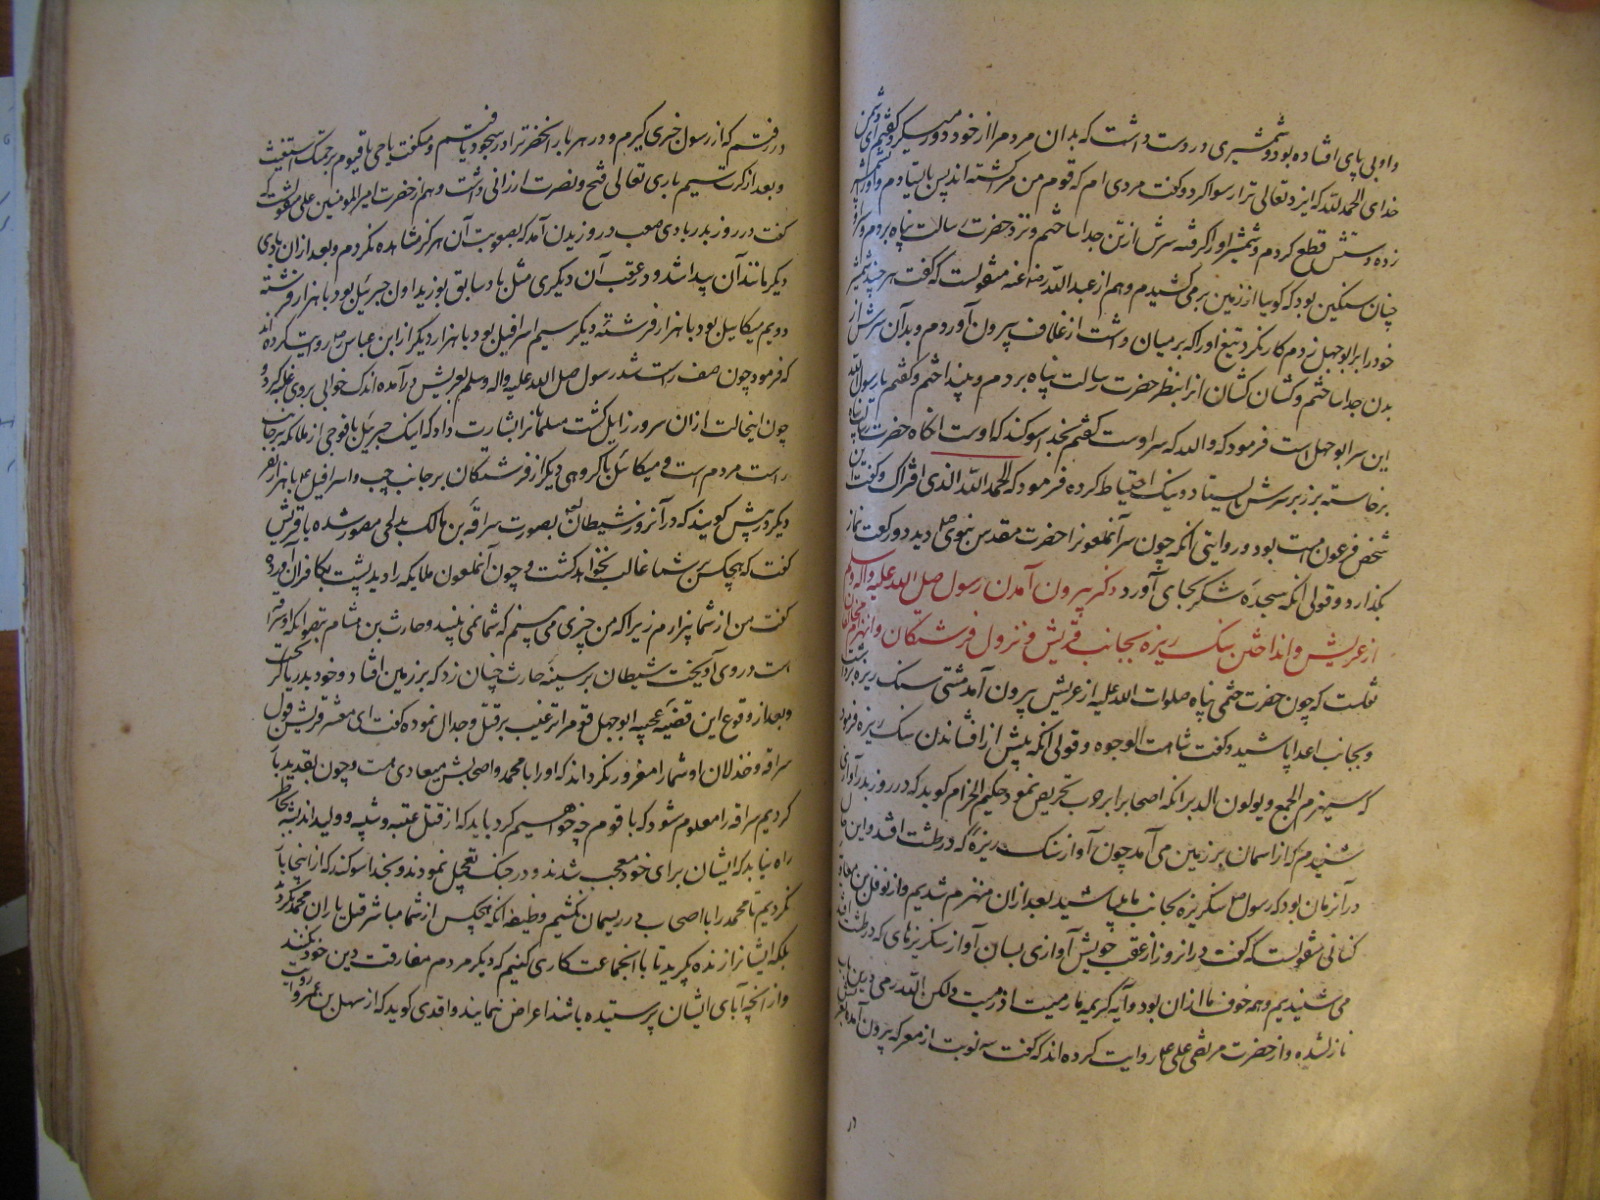 و او بی پای افتاده بود و شمشیری در دست داشت که بدان مردم را از خود دور میکرد گفتم ای دشمن
خدای الحمد لله که ایزد تعالی ترا رسوا کرد و گفت مردی ام که قوم من مرا کشته اند پس با تیغ
زده دستش قطع کردم و شمشیر او را گرفته سرش از تن جدا ساختم و نزد حضرت رسالت پناه بردم و
چنان سنگین بود که گویا از زمین بر می کشیدم و هم از عبد الله رضی عنه منقولست که گفت هر چند شمشیر
خود را بر ابوجهل زدم کار نکرد تیغ او را که بر میان داشت از غلاف بیرون آوردم و بدان سرش از
بدن جدا ساختم و کشان کشان انرا بنظر حضرت رسالت پناه بردم و بینداختم و گفتم یا رسول الله
این سر ابوجهل است فرمود که والله که سر اوست گفتم بخدا سوگند که اوست انگاه حضرت رسالت پناه
برخاسته بر زبر سرش بایستاد و نیک احتیاط کرده فرمود که الحمد لله الذی اخزاک و گفت این
شخص فرعون امت بود و روایتی آنکه چون سر آنملعون را حضرت مقدس نبوی دید دو رکعت نماز
بگذارد و قولی آنکه سجده شکر بجای آورد ذکر بیرون آمدن رسول صلی الله علیه واله وسلم
از عریش و انداختن سنک ریزه بجانب قریش و نزول فرشتگان و انهزام مخالفان
نقلست که چون حضرت ختمی پناه صلوات الله علیه از عریش بیرون آمد مشتی سنک ریزه برداشت
و بجانب اعدا پاشید و گفت شاهت الوجوه و قولی آنکه پیش از افشاندن سنک ریزه فرمود
که سیهزم الجمع ویولون الدبر آنکه اصحاب را بر حرب تحریض نمود حکیم الحزام گوید که در روز بدر آوازی
شنیدم که از اسمان بر زمین می آمد چون آواز سنک ریزه که در طشت افتد و این حال
در آنزمان بود که رسول سنگریزه بجانب ما پاشید بعد از ان منهزم شدیم و از نوفل بن معاویه
کنانی منقولست که گفت در انروز از عقب خویش آوازی بسان آواز سنگریزهای که در طشت افتد
می شنیدیم و همه خوف ما از ان بود و آیه کریمه ما رمیت اذ رمیت ولکن الله رمی درین باب
نازل شده و از حضرت مرتضی علی ع روایت کرده اند که گفت سه نوبت از معرکه بیرون آمده بعریش
در
در رفتم که از رسول خبری گیرم و در هر بار انحضرت را در سجود یافتم و میگفت یا حی یا قیوم برحمتک استغیث
و بعد از کرت سیم باری تعالی فتح و نصرت ارزانی داشت و هم از حضرت امیر المومنین علی منقولست که
گفت در روز بدر بادی صعب در وزیدن آمد که بصعوبت آن هرگز مشاهده نکردم و بعد از ان بادی
دیگر مانند آن پیدا شد و در عقب آن دیگری مثل باد سابق بوزید اول جبرئیل بود با هزار فرشته
دویم میکاییل بود با هزار فرشته دیگر سیم اسرافیل بود با هزار دیگر از ابن عباس روایت کرده اند
که فرمود چون صف راست شد رسول صلی الله علیه واله وسلم بعریش در آمده اندک خوابی بر وی غلبه کرد و
چون اینحالت از ان سرور زایل گشت مسلمانرا بشارت داد که اینک جبرئیل با فوجی از ملائکه بر جانب
راست مردم است و میکائیل با گروهی دیگر از فرشتگان بر جانب چپ و اسرافیل با هزار نفر
دیگر در پیش گویند که در آنروز شیطان لعین بصورت سراقه بن مالک مدلجی مصور شده با قریش
گفت که هیچکس بر شما غالب نخواهد گشت و چون آنملعون ملایکه را دید پشت بکافران آورده
گفت من از شما بیزارم زیرا که من چیزی می بینم که شما نمی بینید و حارث بن هشام بتصور انکه او سراقه
است در وی آویخت شیطان بر سینه حارث چنان زد که بر زمین افتاد و خود بدریا
و بعد از وقوع این قضیه عجیبه ابوجهل قوم را ترغیب بر قتل و جدال نموده گفت ای معشر قریش قول
سراقه و خذلان او شما را مغرور نگرداند که او را با محمد و اصحابش میعادی هست و چون بقدید باز
گردیم سراقه را معلوم شود که با قوم چه خواهیم کرد باید که از قتل عتبه و شیبه و ولید اندیشه بخاطر
راه نیابد که ایشان برای خود معجب شدند و در جنک تعجیل نمودند و بخدا سوگند که از اینجا باز
نگردیم تا محمد را با اصحاب وی در ریسمان نکشیم وظیفه انکه هیچکس از شما مباشر قتل یاران محمد نگردد
بلکه ایشانرا زنده بگیرید تا با انجماعت کاری کنیم که دیگر مردم مفارقت دین خود نکنند
و از آنچه آبای ایشان پرستیده باشند اعراض ننمایند و اقدی گوید که از سهل بن عمرو روایت